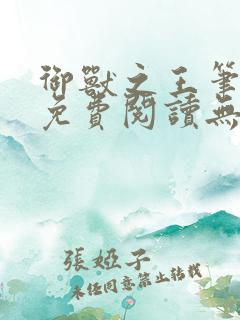 御獸之王筆
免費閱讀無
張婭子
未經同意禁止轉載